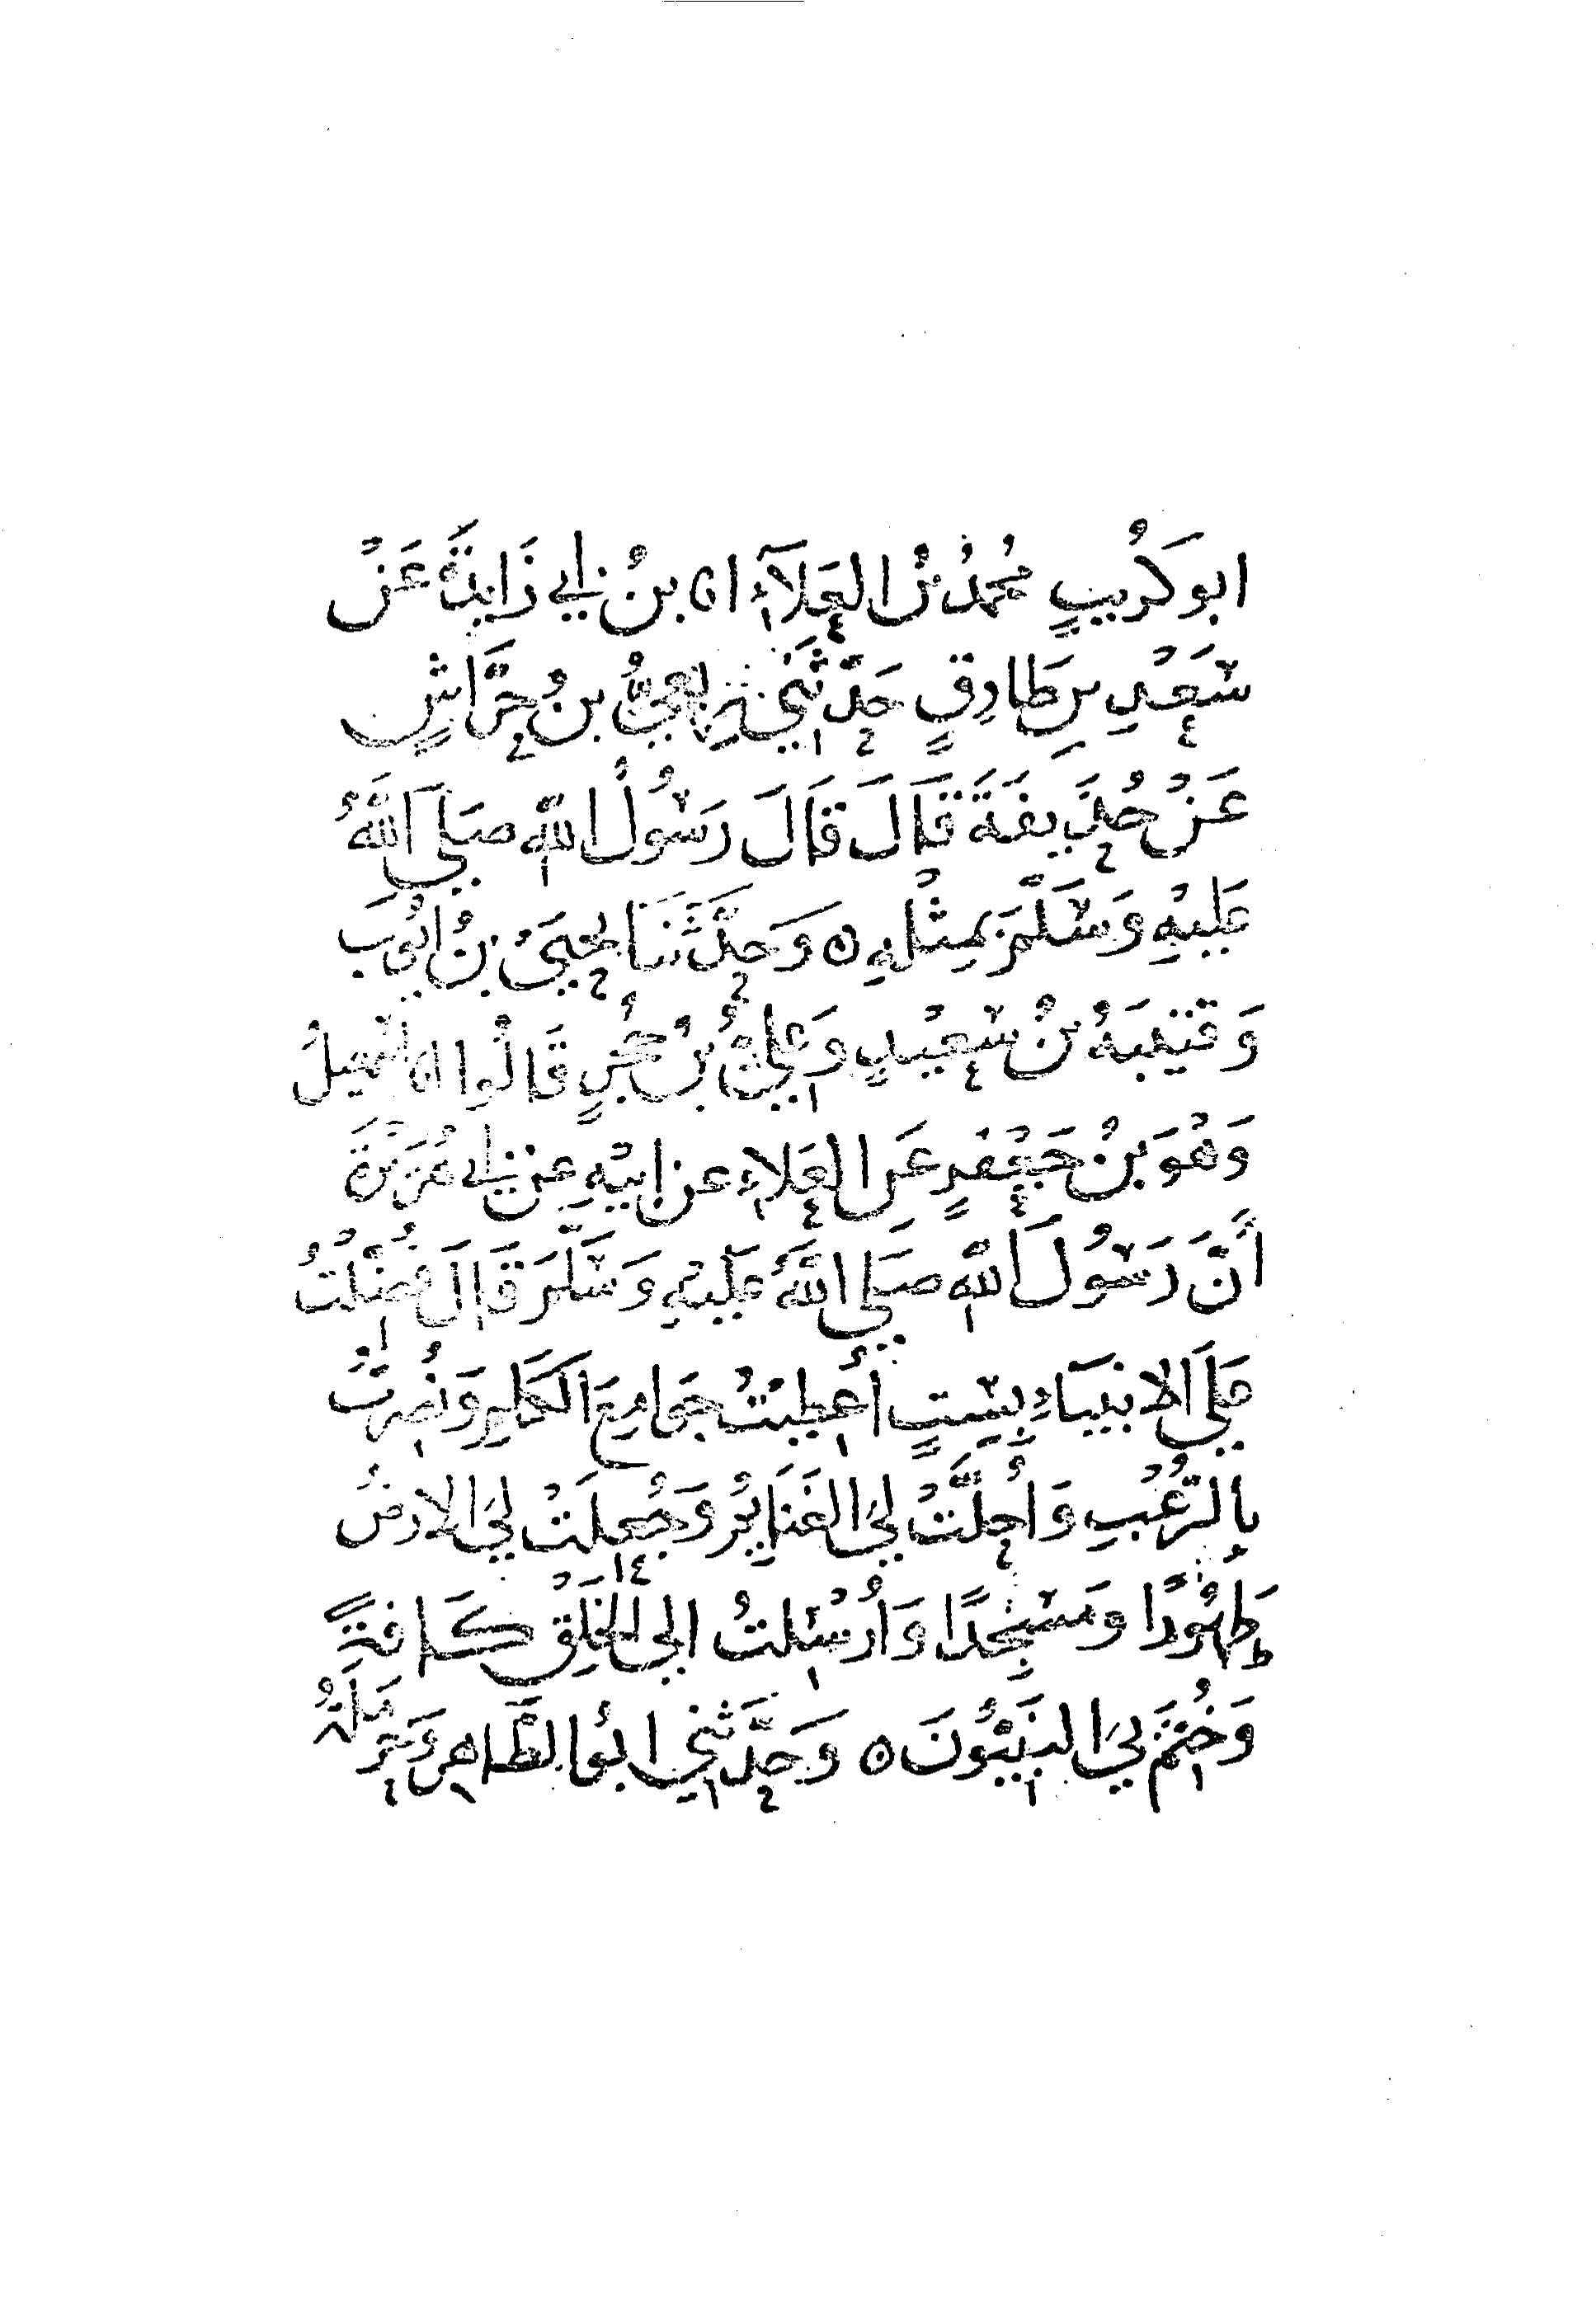 ابو كُرَيبٍ مُحمدُ بنُ العَلَآءِ انا بنُ ابي زَايِدَةَ عَنْ
سَعْدِ بنِ طَارِقٍ حَدَّثَنِي رِبعِيُّ بنُ حِرَاشٍ
عَنْ حُذَيفَةَ قَالَ قَالَ رَسُولُ اللهِ صَلَّى اللهُ
عَلَيْهِ وَسَلَّمَ بِمِثْلِهِ ه وَحَدَّثَنَا يَحيَى بنُ ايُّوبَ
وَقُتَيْبَةُ بنُ سَعِيْدٍ وَعَلِيُّ بنُ حُجْرٍ قَالُوا انا اسْمعيلُ
وَهُوَ بنُ جَعْفَرٍ عَنِ العَلَاءِ عن ابيْهِ عن ابي هُرَيْرَةَ
أَنَّ رَسُولَ اللهِ صَلَّى اللهُ عَلَيْهِ وَسَلَّمَ قَالَ فُضِّلْتُ
عَلَى الانبيَاءِ بِسِتٍ أُعْطِيْتُ جَوَامِعَ الكَلِمِ وَنُصِرتُ
بِالرُّعْبِ وَأُحِلَّتْ لِيَ الغَنَايِمُ وَجُعِلَتْ لِيَ الارضُ
طَهُوْرًا ومَسْجِدًا وَأُرْسِلتُ الى الخَلْقِ كَافةً
وَخُتِمَ بِيَ النَبِيُّوْنَ ه وَحَدَّثَنِي ابُوا لطَّاهِرِ وَحَرْمَلَةُ